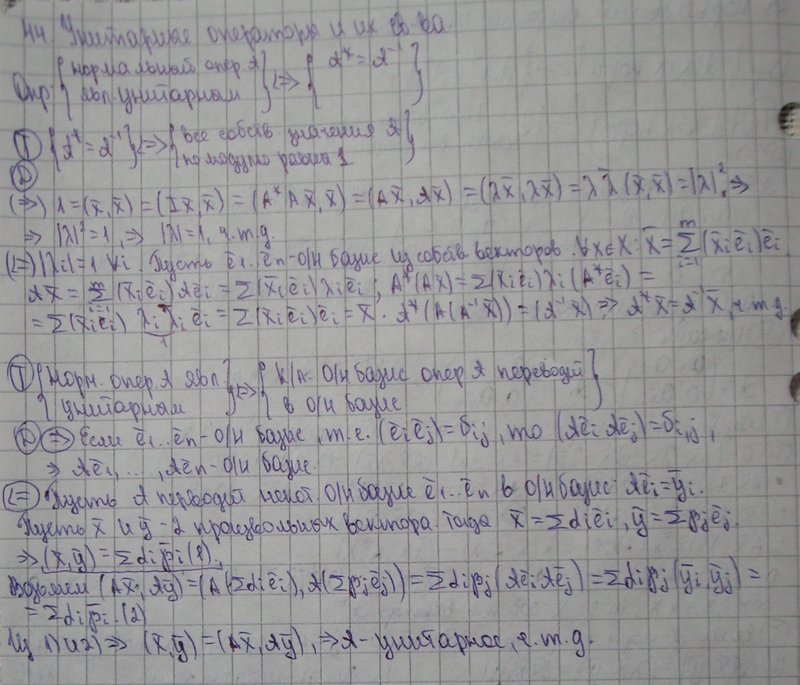 44 Унитарные операторы и их св-ва.
Опр: {нормальный опер. A явл. унитарным} <=> {A* = A⁻¹}
(T) {A* = A⁻¹} <=> {все собств значения A по модулю равны 1}
(D)
(=>) 1 = (x̄, x̄) = (I x̄, x̄) = (A*A x̄, x̄) = (A x̄, A x̄) = (λx̄, λx̄) = λ λ̄ (x̄, x̄) = |λ|², =>
=> |λ|² = 1, => |λ| = 1, ч.т.д.
(<=) |λi| = 1 ∀i. Пусть ē₁..ēn - о/н базис из собств. векторов. ∀x∈X: x̄ = Σ(x̄i ēi) ēi
A x̄ = Σ(x̄i ēi) A ēi = Σ(x̄i ēi) λi ēi; A*(A x̄) = Σ(x̄i ēi) λi (A* ēi) =
= Σ(x̄i ēi) λi λ̄i ēi = Σ(x̄i ēi) ēi = x̄. A*(A(A⁻¹ x̄)) = (A⁻¹ x̄) => A* x̄ = A⁻¹ x̄, ч.т.д.
(T) {Норм. опер. A явл унитарным} <=> {к/л. о/н базис опер. A переводит в о/н базис}
(D) (=>) Если ē₁...ēn - о/н базис, т.е. (ēi ēj) = δij, то (A ēi A ēj) = δi,j,
=> A ē₁, ..., A ēn - о/н базис.
(<=) Пусть A переводит некот. о/н базис ē₁...ēn в о/н базис: A ēi = ȳi.
Пусть x̄ и ȳ - 2 произвольных вектора. Тогда x̄ = Σ αi ēi, ȳ = Σ βj ēj
=> (x̄, ȳ) = Σ αi β̄i (1),
Возьмем (A x̄, A ȳ) = (A(Σ αi ēi), A(Σ βj ēj)) = Σ αi β̄j (A ēi A ēj) = Σ αi β̄j (ȳi, ȳj) =
= Σ αi β̄i. (2)
Из 1) и 2) => (x̄, ȳ) = (A x̄, A ȳ), => A - унитарное, ч.т.д.